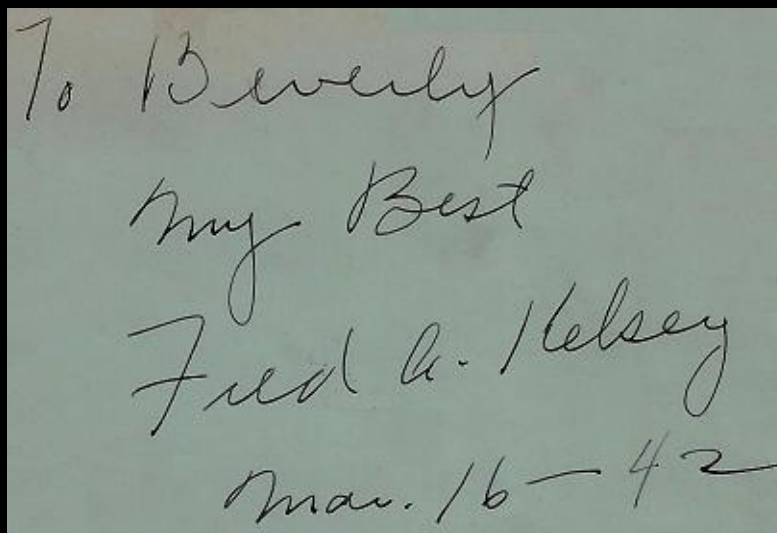 To Beverly
My Best
Fred A. Kelsey
Mar. 16 - 42